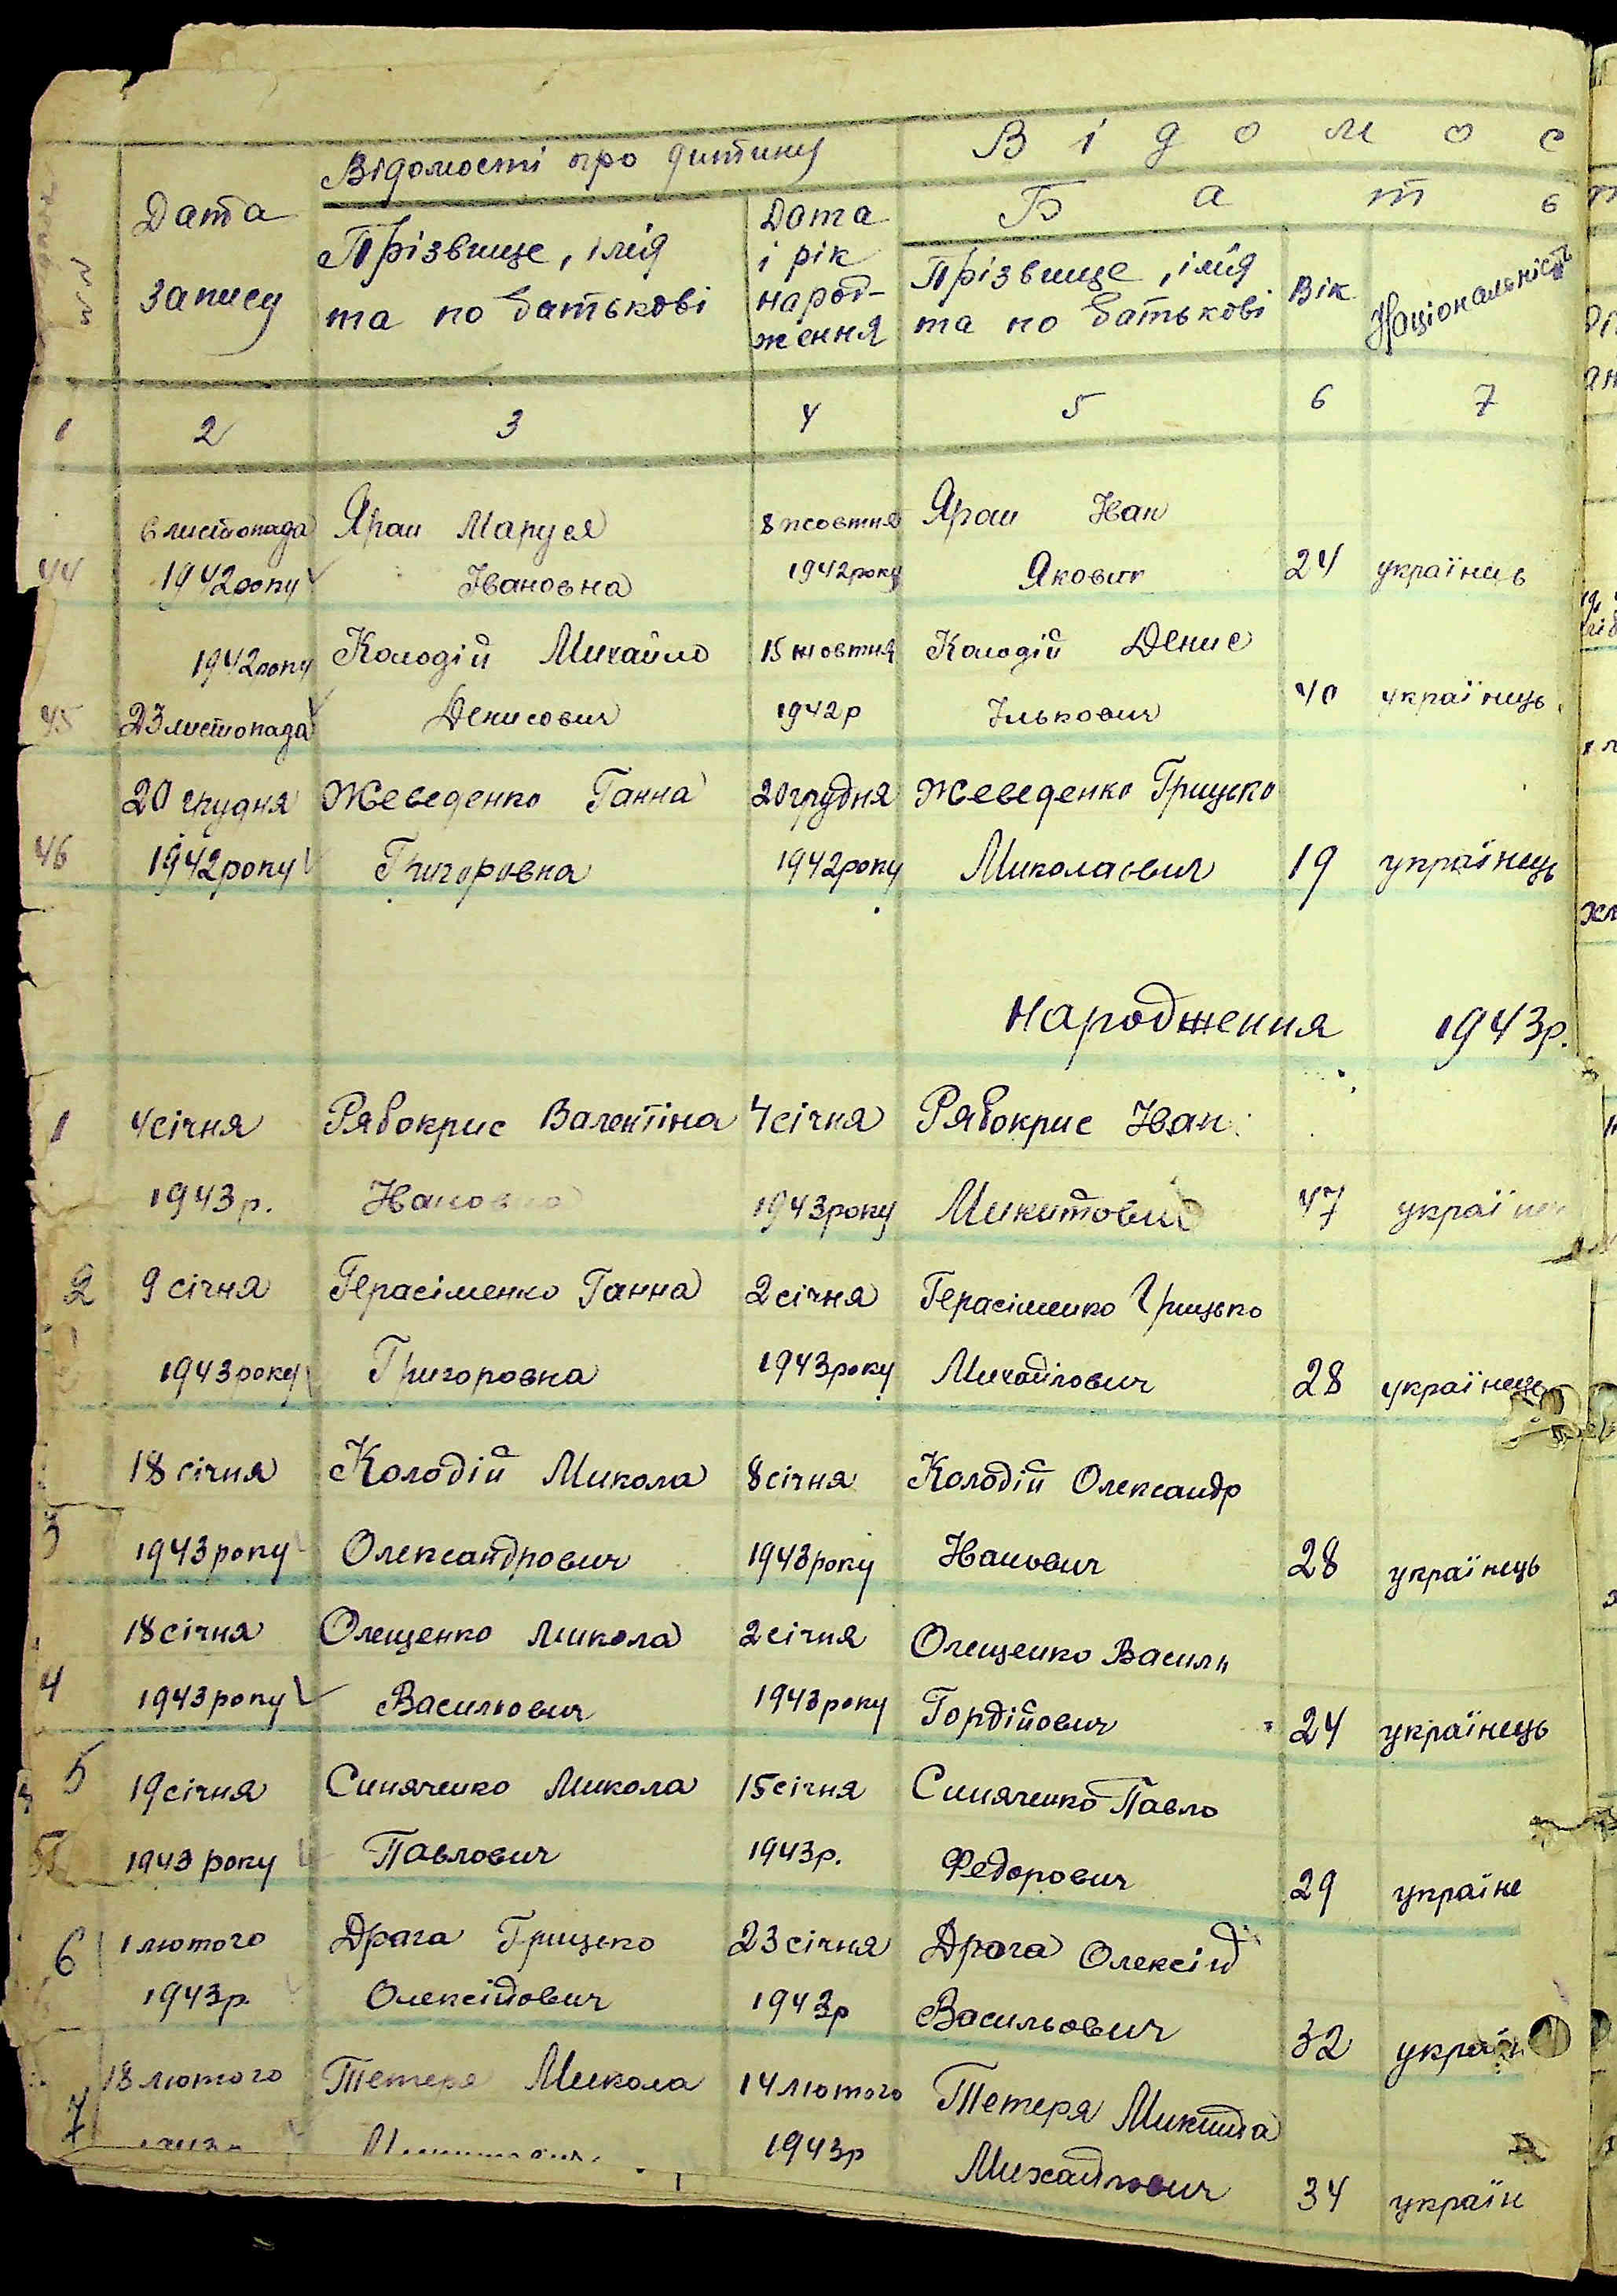 Відомості про дитину
В і д о м о с
Б а т ь
№№
Дата
запису
Прізвище, імя
та по батькові
Дата
і рік
народ-
ження
Прізвище, імя
та по батькові
Вік
Національність
1 2 3 4 5 6 7
6 листопада Яраш Маруся 8 жовтня Яраш Іван
44 1942 року Івановна 1942 року Якович 24 українець
1942 року Колодій Михайло 15 жовтня Колодій Денис
45 23 листопада Денисович 1942 р Ількович 40 українець
20 грудня Жеведенко Ганна 20 грудня Жеведенко Грицько
46 1942 року Григоровна 1942 року Миколаович 19 українець
Народження 1943 р.
1 4 січня Рябокрис Валентіна 4 січня Рябокрис Іван
1943 р. Івановна 1943 року Микитович 47 україне
2 9 січня Герасіменко Ганна 2 січня Герасіменко Грицько
1943 року Григоровна 1943 року Михайлович 28 українець
18 січня Колодій Микола 8 січня Колодій Олександр
3 1943 року Олександрович 1943 року Іванович 28 українець
18 січня Олещенко Микола 2 січня Олещенко Василь
4 1943 року Васильович 1943 року Гордійович 24 українець
5 19 січня Синяченко Микола 15 січня Синяченко Павло
1943 року Павлович 1943 р. Федорович 29 україне
6 1 лютого Драга Грицько 23 січня Драга Олексій
1943 р. Олексійович 1943 р Васильович 32 україн
18 лютого Тетеря Микола 14 лютого Тетеря Микита
7 1943 р Михайлович 34 україн